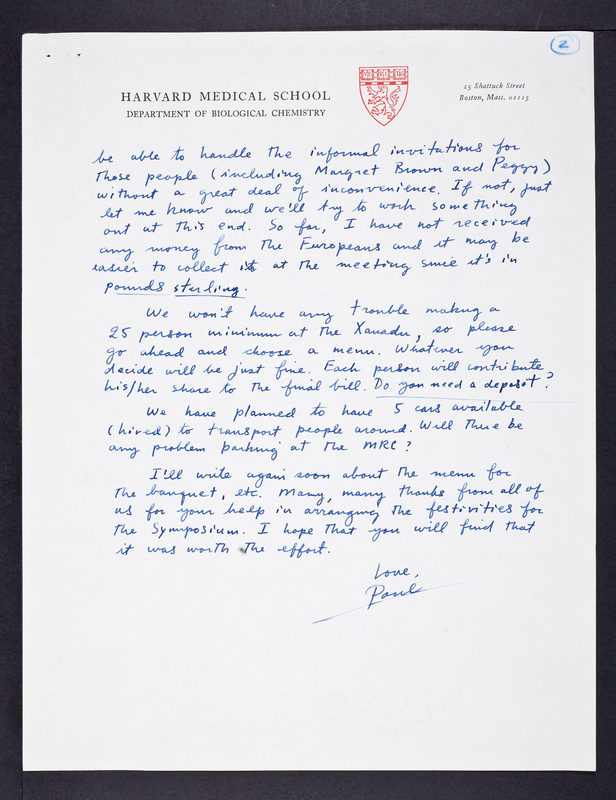 2
HARVARD MEDICAL SCHOOL
DEPARTMENT OF BIOLOGICAL CHEMISTRY
VE RI TAS
25 Shattuck Street
Boston, Mass. 02115
be able to handle the informal invitations for
those people (including Margret Brown and Peggy)
without a great deal of inconvenience. If not, just
let me know and we'll try to work something
out at this end. So far, I have not received
any money from the Europeans and it may be
easier to collect it at the meeting since it's in
pounds sterling.
We won't have any trouble making a
25 person minimum at the Xanadu, so please
go ahead and choose a menu. Whatever you
decide will be just fine. Each person will contribute
his/her share to the final bill. Do you need a deposit?
We have planned to have 5 cars available
(hired) to transport people around. Will there be
any problem parking at the MRC?
I'll write again soon about the menu for
the banquet, etc. Many, many thanks from all of
us for your help in arranging the festivities for
the Symposium. I hope that you will find that
it was worth the effort.
Love,
Paul